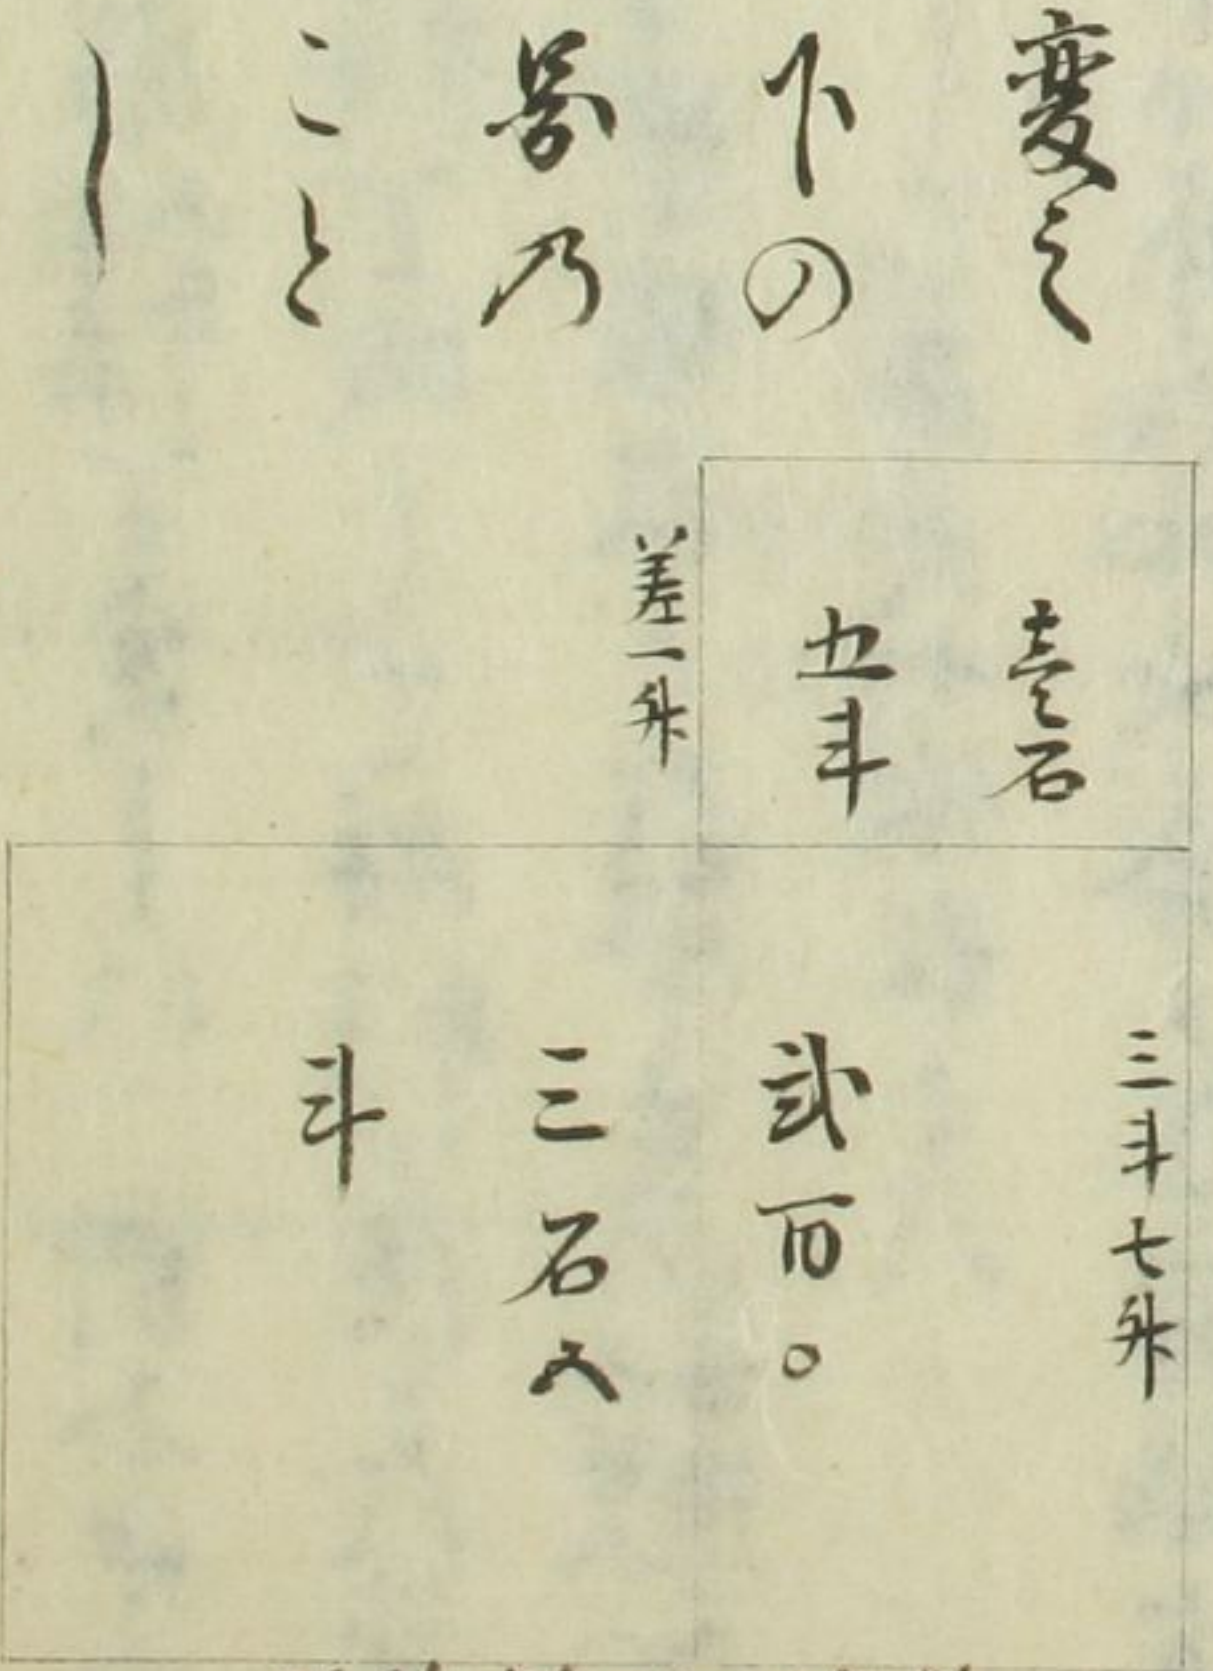 変之
下の
畧乃
こと
し
壱石
五斗
差一升
三斗七升
弐百〇
三石五
斗